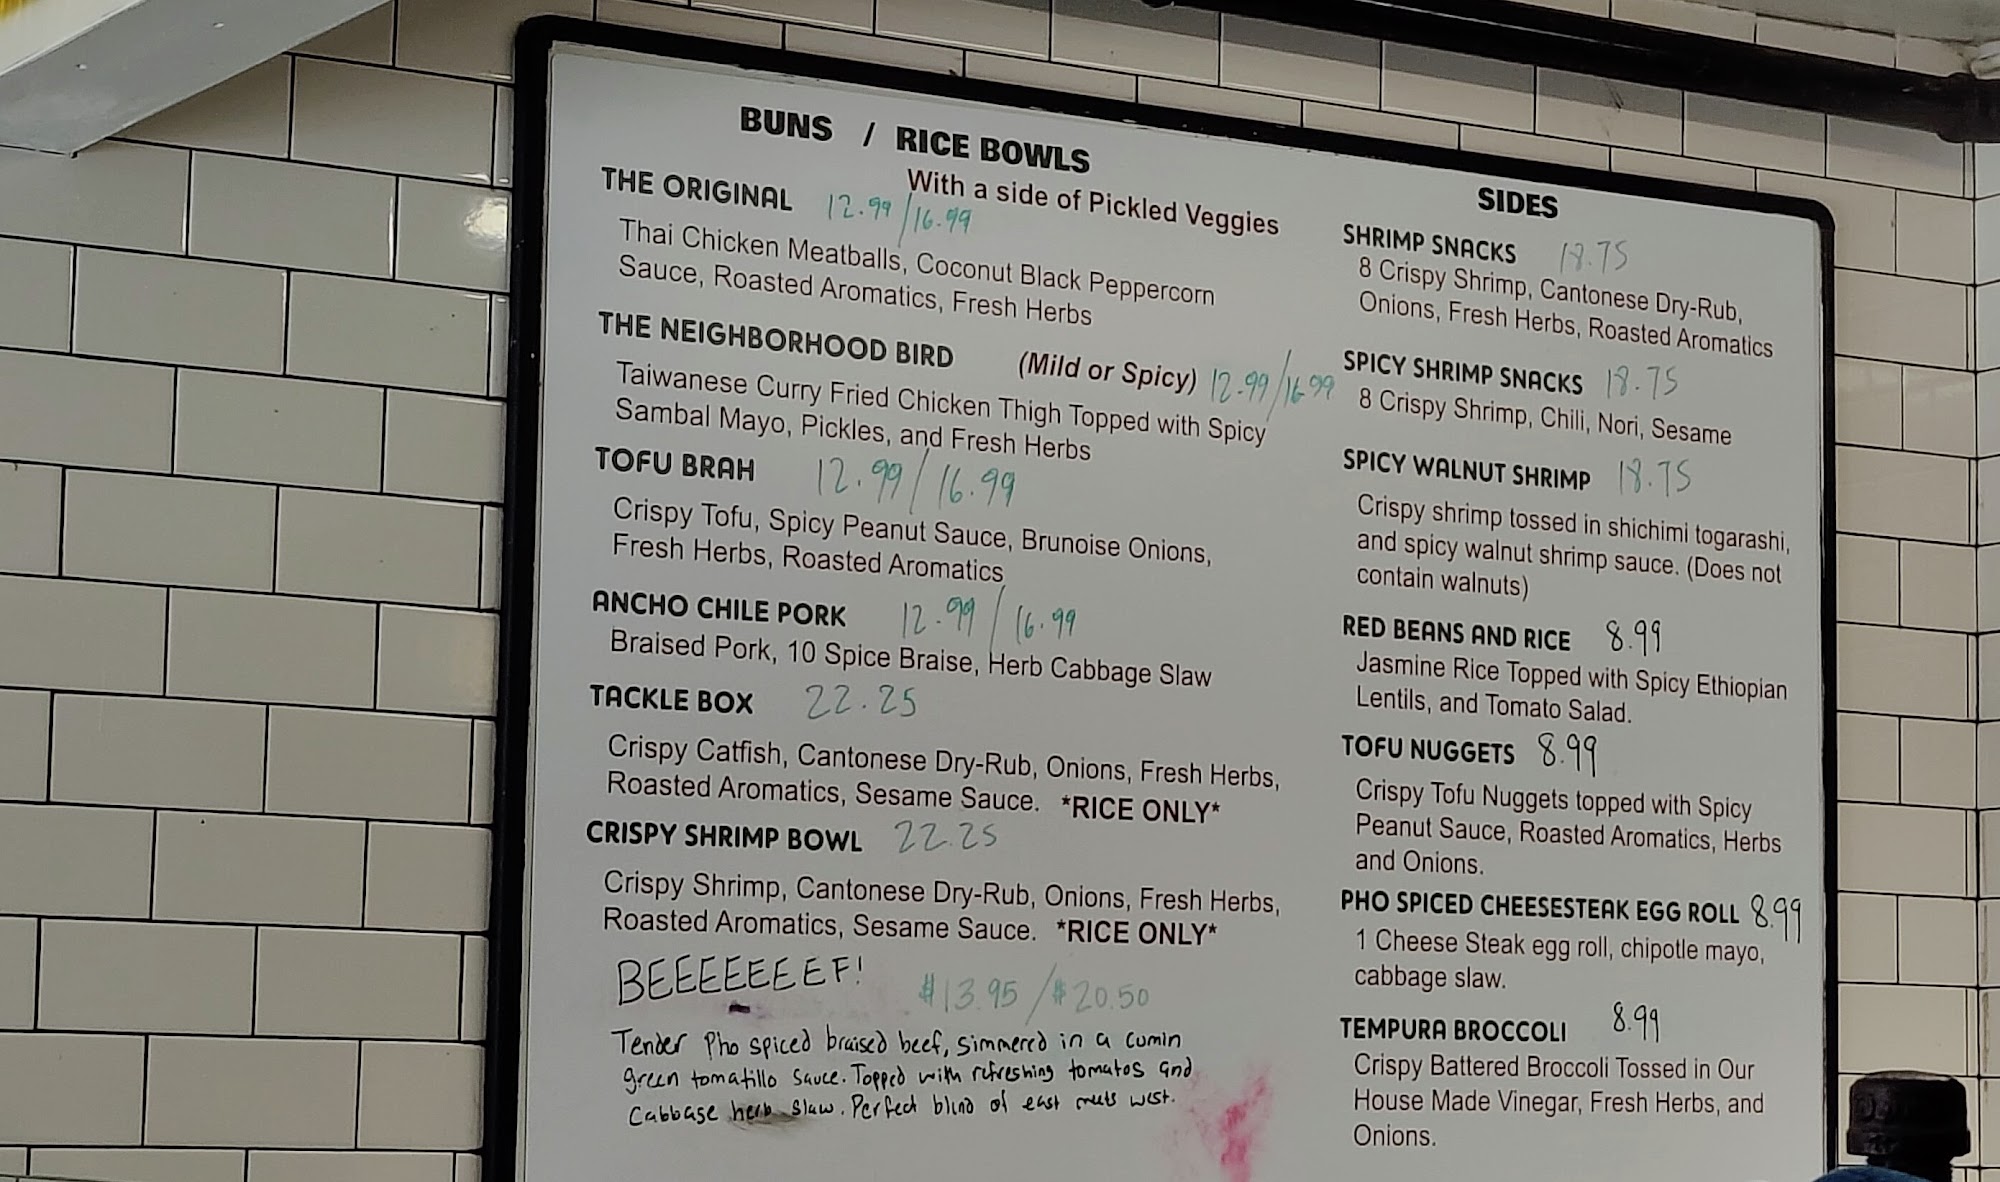 BUNS / RICE BOWLS
With a side of Pickled Veggies
THE ORIGINAL 12.99/16.99
Thai Chicken Meatballs, Coconut Black Peppercorn
Sauce, Roasted Aromatics, Fresh Herbs
THE NEIGHBORHOOD BIRD (Mild or Spicy) 12.99/16.99
Taiwanese Curry Fried Chicken Thigh Topped with Spicy
Sambal Mayo, Pickles, and Fresh Herbs
TOFU BRAH 12.99/16.99
Crispy Tofu, Spicy Peanut Sauce, Brunoise Onions,
Fresh Herbs, Roasted Aromatics
ANCHO CHILE PORK 12.99/16.99
Braised Pork, 10 Spice Braise, Herb Cabbage Slaw
TACKLE BOX 22.25
Crispy Catfish, Cantonese Dry-Rub, Onions, Fresh Herbs,
Roasted Aromatics, Sesame Sauce. *RICE ONLY*
CRISPY SHRIMP BOWL 22.25
Crispy Shrimp, Cantonese Dry-Rub, Onions, Fresh Herbs,
Roasted Aromatics, Sesame Sauce. *RICE ONLY*
BEEEEEEEF! $13.95/$20.50
Tender Pho spiced braised beef, simmered in a cumin
green tomatillo sauce. Topped with refreshing tomatos and
Cabbage herb slaw. Perfect blind of east meets west.
SIDES
SHRIMP SNACKS 18.75
8 Crispy Shrimp, Cantonese Dry-Rub,
Onions, Fresh Herbs, Roasted Aromatics
SPICY SHRIMP SNACKS 18.75
8 Crispy Shrimp, Chili, Nori, Sesame
SPICY WALNUT SHRIMP 18.75
Crispy shrimp tossed in shichimi togarashi,
and spicy walnut shrimp sauce. (Does not
contain walnuts)
RED BEANS AND RICE 8.99
Jasmine Rice Topped with Spicy Ethiopian
Lentils, and Tomato Salad.
TOFU NUGGETS 8.99
Crispy Tofu Nuggets topped with Spicy
Peanut Sauce, Roasted Aromatics, Herbs
and Onions.
PHO SPICED CHEESESTEAK EGG ROLL 8.99
1 Cheese Steak egg roll, chipotle mayo,
cabbage slaw.
TEMPURA BROCCOLI 8.99
Crispy Battered Broccoli Tossed in Our
House Made Vinegar, Fresh Herbs, and
Onions.